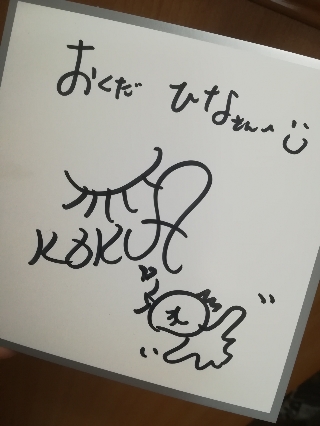 おくだ ひなさんへ
KOKU